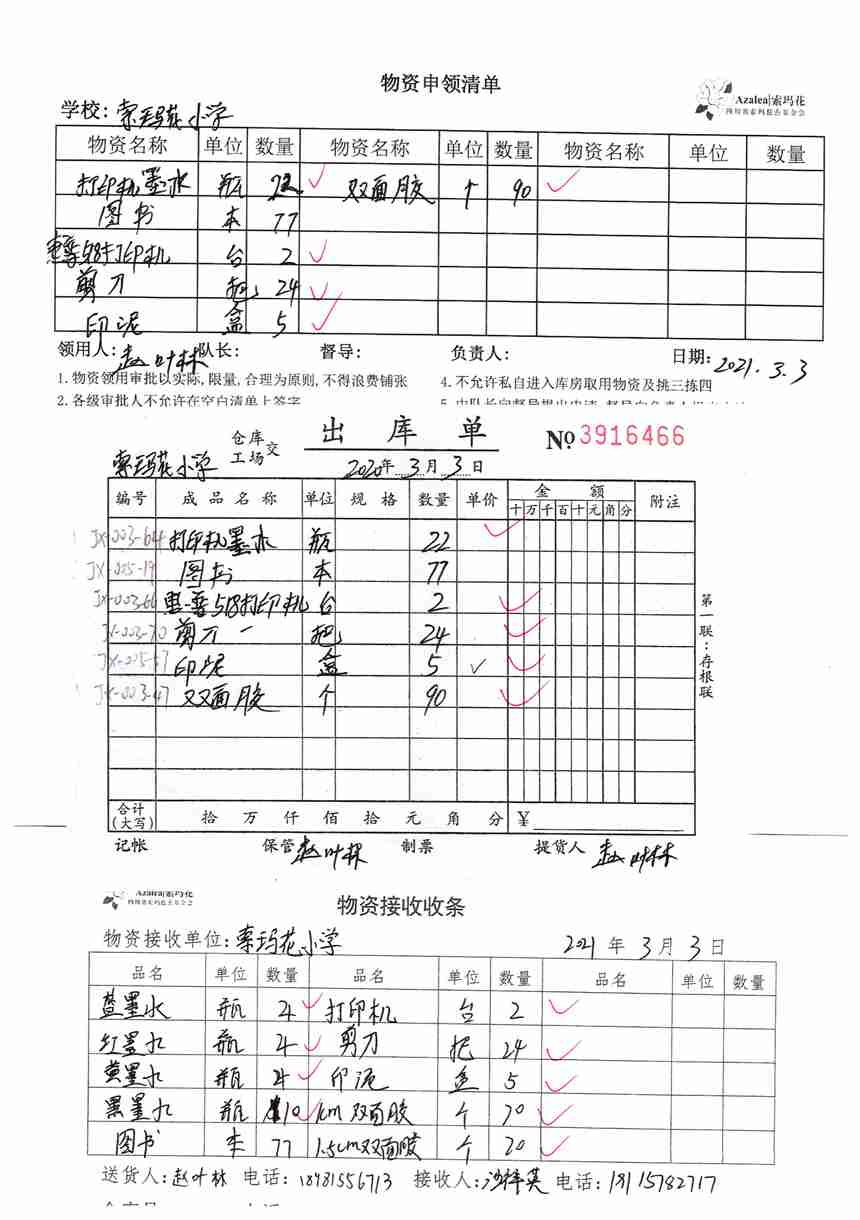 物资申领清单
Azalea|索玛花
四川省索玛慈善基金会
学校: 索玛花小学
物资名称 单位 数量 物资名称 单位 数量 物资名称 单位 数量
打印机墨水 瓶 22 双面胶 个 90
图书 本 77
惠普518打印机 台 2
剪刀 把 24
印泥 盒 5
领用人: 赵叶林 队长: 督导: 负责人: 日期: 2021.3.3
1. 物资领用审批以实际, 限量, 合理为原则, 不得浪费铺张 4. 不允许私自进入库房取用物资及挑三拣四
2. 各级审批人不允许在空白清单上签字
仓库 工场 交 出库单 № 3916466
索玛花小学 2020年3月3日
编号 成品名称 单位 规格 数量 单价 金额 附注
十万千百十元角分
JX-003-64 打印机墨水 瓶 22
JX-005-19 图书 本 77
JX-003-66 惠普518打印机 台 2
JX-003-70 剪刀 把 24
印泥 盒 5
JX-003-47 双面胶 个 90
第一联:存根联
合计(大写) 拾 万 仟 佰 拾 元 角 分 ¥
记帐 保管 赵叶林 制票 提货人 赵叶林
Azalea|索玛花
四川省索玛慈善基金会
物资接收收条
物资接收单位: 索玛花小学 2021年3月3日
品名 单位 数量 品名 单位 数量 品名 单位 数量
蓝墨水 瓶 4 打印机 台 2
红墨水 瓶 4 剪刀 把 24
黄墨水 瓶 4 印泥 盒 5
黑墨水 瓶 10 1cm双面胶 个 70
图书 本 77 1.5cm双面胶 个 20
送货人: 赵叶林 电话: 18981556713 接收人: 电话: 18115782717